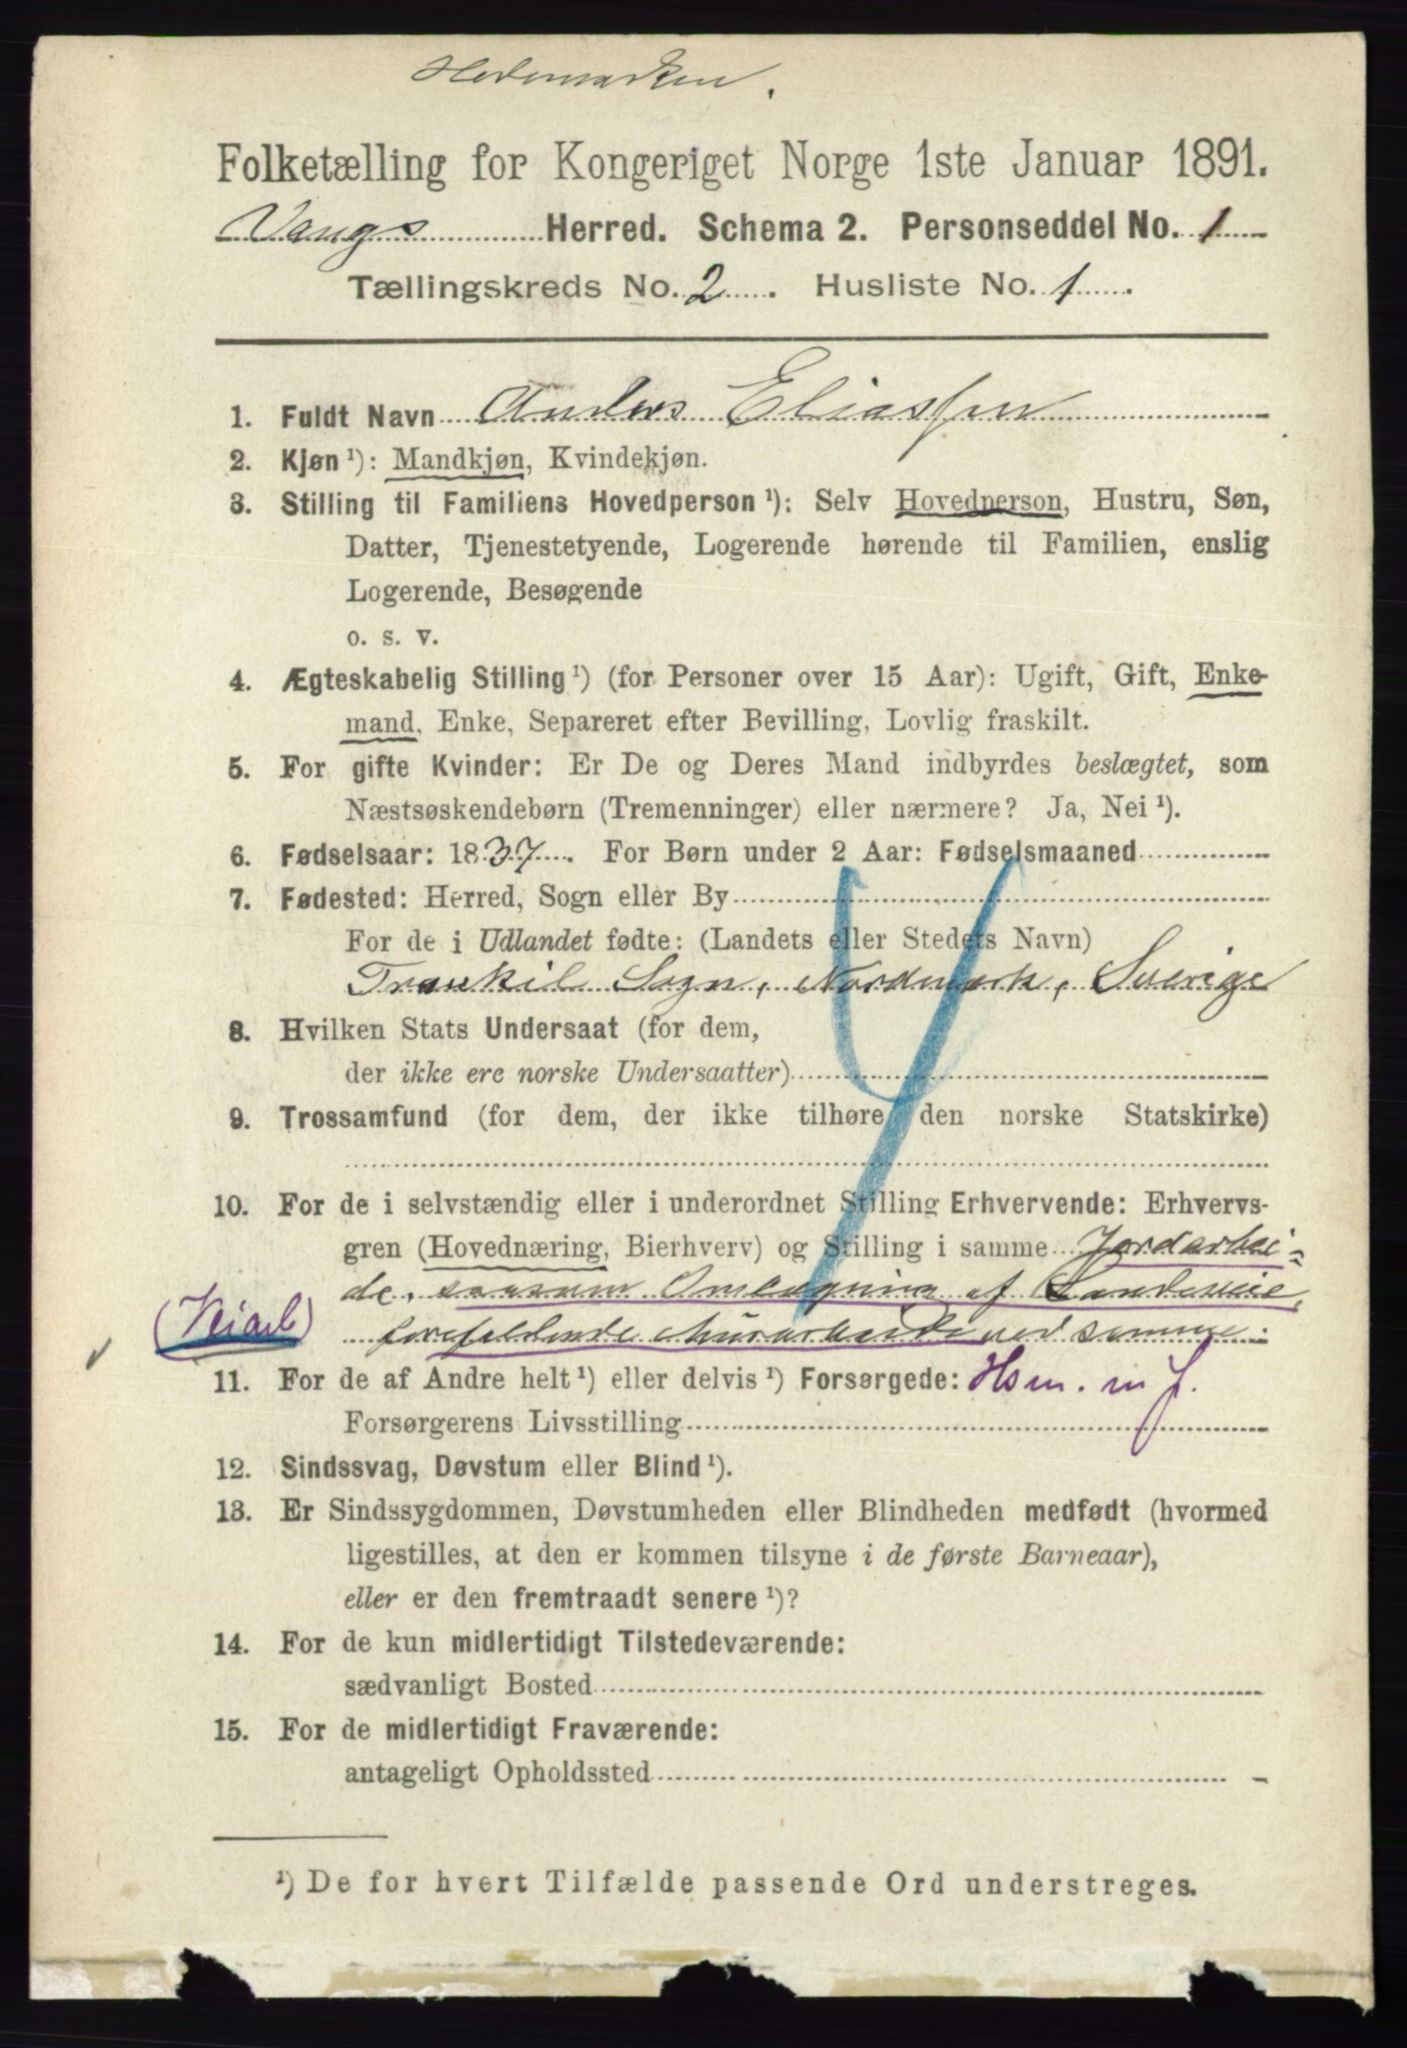 Hedemarken.
Folketælling for Kongeriget Norge 1ste Januar 1891.
Vangs Herred. Schema 2. Personseddel No. 1
Tællingskreds No. 2. Husliste No. 1.
1. Fuldt Navn Anders Eliassen
2. Kjøn ¹): Mandkjøn, Kvindekjøn.
3. Stilling til Familiens Hovedperson ¹): Selv Hovedperson, Hustru, Søn,
Datter, Tjenestetyende, Logerende hørende til Familien, enslig
Logerende, Besøgende
o. s. v.
4. Ægteskabelig Stilling ¹) (for Personer over 15 Aar): Ugift, Gift, Enke-
mand, Enke, Separeret efter Bevilling, Lovlig fraskilt.
5. For gifte Kvinder: Er De og Deres Mand indbyrdes beslægtet, som
Næstsøskendebørn (Tremenninger) eller nærmere? Ja, Nei ¹).
6. Fødselsaar: 1837. For Børn under 2 Aar: Fødselsmaaned
7. Fødested: Herred, Sogn eller By
For de i Udlandet fødte: (Landets eller Stedets Navn)
Trankil Sogn, Nordmark, Sverige
8. Hvilken Stats Undersaat (for dem,
der ikke ere norske Undersaatter)
9. Trossamfund (for dem, der ikke tilhøre den norske Statskirke)
10. For de i selvstændig eller i underordnet Stilling Erhvervende: Erhvervs-
gren (Hovednæring, Bierhverv) og Stilling i samme Jordarbei-
de, saasom Omlægning af Landeveie,
(Veiarb) forefaldende Murarbeide ved samme.
11. For de af Andre helt ¹) eller delvis ¹) Forsørgede: Hsm. m J.
Forsørgerens Livsstilling
12. Sindssvag, Døvstum eller Blind ¹).
13. Er Sindssygdommen, Døvstumheden eller Blindheden medfødt (hvormed
ligestilles, at den er kommen tilsyne i de første Barneaar),
eller er den fremtraadt senere ¹)?
14. For de kun midlertidigt Tilstedeværende:
sædvanligt Bosted
15. For de midlertidigt Fraværende:
antageligt Opholdssted
¹) De for hvert Tilfælde passende Ord understreges.